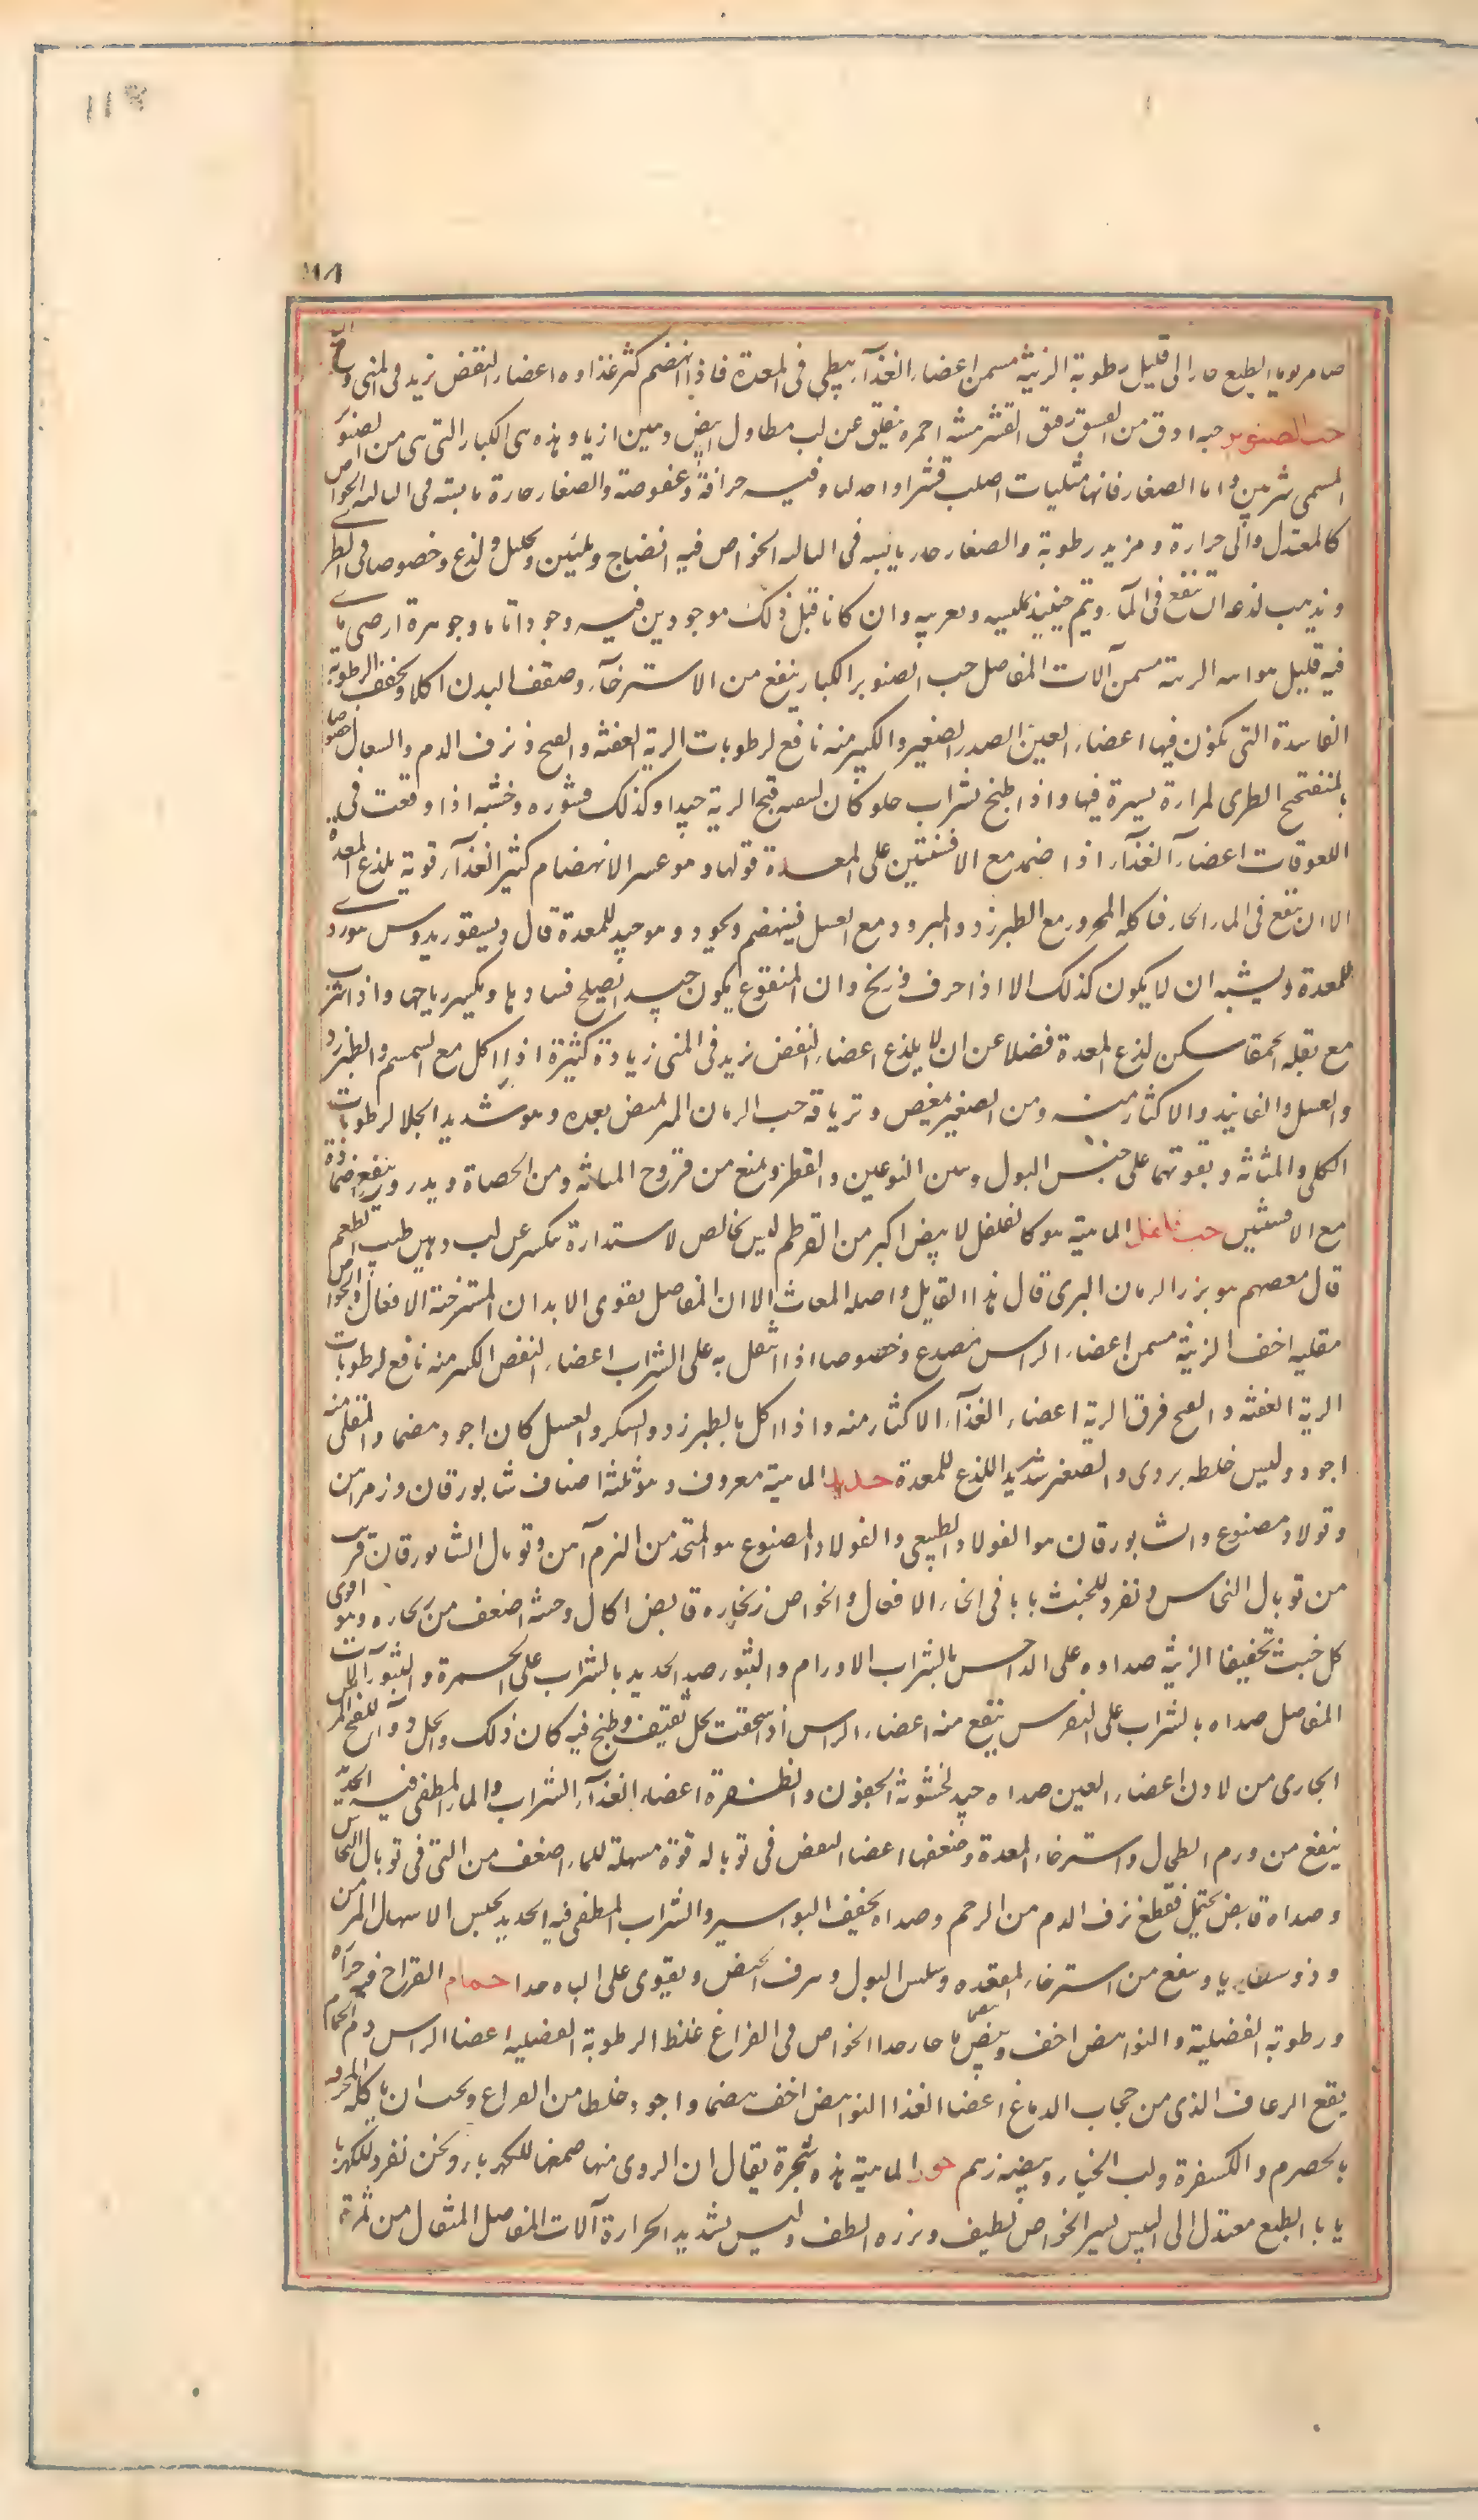 ١١٩
١١٨
الطبع حار الى قليل رطوبة الزينة مسمن اعضاء الغذآء بطى فى المعدة فاذا انهضم كثر غذاوه اعضاء النفض يزيد فى المنى
حب الصنوبر حبه ادق من الفستق رقيق القشر هشه احمره ينفلق عن لب مطاول ابيض دهين لذيذ وهذه هى الكبار التى هى من الصنوبر
المسمى واما الصغار فانها مثلثات اصلب قشرا وفيه حرافة وعفوصة والصغار حارة يابسة فى الثالثة الخواص
كالمعتدل والى حرارة ومزيد رطوبة والصغار حار يابس فى الثالثة الخواص فيه انضاج وتليين وتحليل ولذع وخصوصا فى الطرى
ويذهب لذعه ان ينقع فى المآء ويتم حينئذ تليينه وتغريته وان كانا قبل ذلك موجودين فيه وجودا تاما وجوهرة ارضى ما
فيه قليل هوائيه الزينة مسمن آلات المفاصل حب الصنوبر الكبار ينفع من الاسترخآء وضعف البدن اكلا ويجفف الرطوبة
الفاسدة التى تكون فيها اعضاء العين الصدر الصغير والكبير منه نافع لرطوبات الرية العفنة والقيح ونزف الدم والسعال خصوصا
الطرى لمرارة يسيرة فيها واذا طبخ بشراب حلو كان لتنقية قيح الرية جيدا وكذلك قشوره وخشبه اذا وقعت فى
اللعوقات اعضاء الغذآء اذا ضمد مع الافسنتين على المعدة قواها وهو عسر الانهضام كثير الغذآء قوية يلذع المعدة
الا ان ينقع فى الماء الحار فاكله المحرور مع الطبرزد والمبرود مع العسل فينهضم ويجود وهو جيد للمعدة قال ديسقوريدوس
للمعدة ويشبه ان لا يكون كذلك الا اذا حرف وزنخ وان المنقوع يكون جيدا يصلح فسادها ويكسر رياحها واذا شرب
مع بقلة الحمقا سكن لذع المعدة فضلا عن ان لا يلذع اعضاء النفض يزيد فى المنى زيادة كثيرة اذا اكل مع السمسم والطبرزد
والعسل والفانيد والاكثار منه ومن الصغير مغص وترياقه حب الرمان المز يمص بعده وهو شديد الجلا لرطوبات
الكلى والمثانة ويقويهما على حبس البول ومن النوعين والقطر ويمنع من قروح المثانة ومن الحصاة ويدر وينفع ضمادة
مع الافسنتين حب فلفل الماهية هو كالفلفل لا بيض اكبر من القرطم ليس بخالص لاستدارة ينكسر عن لب دهين طيب الطعم
قال بعضهم هو بزر الرمان البرى قال هذا القايل واصله المغاث الا ان المفاصل يقوى الابدان المسترخية الافعال والخواص
مقليه اخف الزينة مسمن اعضاء الراس مصدع وخصوصا اذا انتقل به على الشراب اعضاء النفض الكبير منه نافع لرطوبات
الرية العفنة والقيح فرق الرية اعضاء الغذآء الاكثار منه واذا اكل بالطبرزد والسكر والعسل كان اجود هضما والمقلى منه
اجود وليس خلطه بردى والصغير شديد اللذع للمعدة حديد الماهية معروف وهو ثلثة اصناف شابورقان ونرم آهن
وفولاد مصنوع والشابورقان هو الفولاد الطبيعى والفولاد المصنوع هو المتخذ من النرم آهن وتوبال الشابورقان قريب
من توبال النحاس ونفرد للخبث بابا فى الخاء الافعال والخواص زنجاره قابض اكال وخبثه اضعف من زنجاره وهو اقوى
كل خبث تجفيفا الزينة صداوه على الداحس بالشراب الاورام والبثور صدا الحديد بالشراب على الحمرة والبثور آلات
المفاصل صداه بالشراب على النقرس ينفع منه اعضاء الراس اذا سحقت بخل ثقيف وطبخ فيه كان ذلك
الجارى من الاذن اعضاء العين صداه جيد لخشونة الجفون والظفرة اعضاء الغذآء الشراب والماء المطفى فيه الحديد
ينفع من ورم الطحال واسترخاء المعدة وضعفها اعضا النفض فى توباله قوة مسهلة للماء اضعف من التى فى توبال النحاس
وصداه قابض يحتمل فقطع نزف الدم من الرحم وصداه يجفف البواسير والشراب المطفى فيه الحديد يحبس الاسهال المزمن
وينفع من استرخاء المقعدة وسلس البول ونزف الحيض ويقوى على الباه جدا حمام الفراخ فيه حرارة
ورطوبة الفضلية والنواهض اخف وبيضها حار جدا الخواص فى الفراخ غلظ الرطوبة الفضليه اعضا الراس دم الحمام
يقع الرعاف الذى من حجاب الدماغ اعضا الغذا النواهض اخف هضما واجود خلطا من الفراخ ويجب ان ياكله المحرور
بالحصرم والكسفرة ولب الخيار وبيضه زهم حور الماهية هذه شجرة يقال ان الرومى منها صمغها للكهربا ونحن نفرد للكهربا
بابا الطبع معتدل الى اليبس يسير الخواص لطيف وبزره الطف وليس بشديد الحرارة آلات المفاصل المثقال من ثمرة